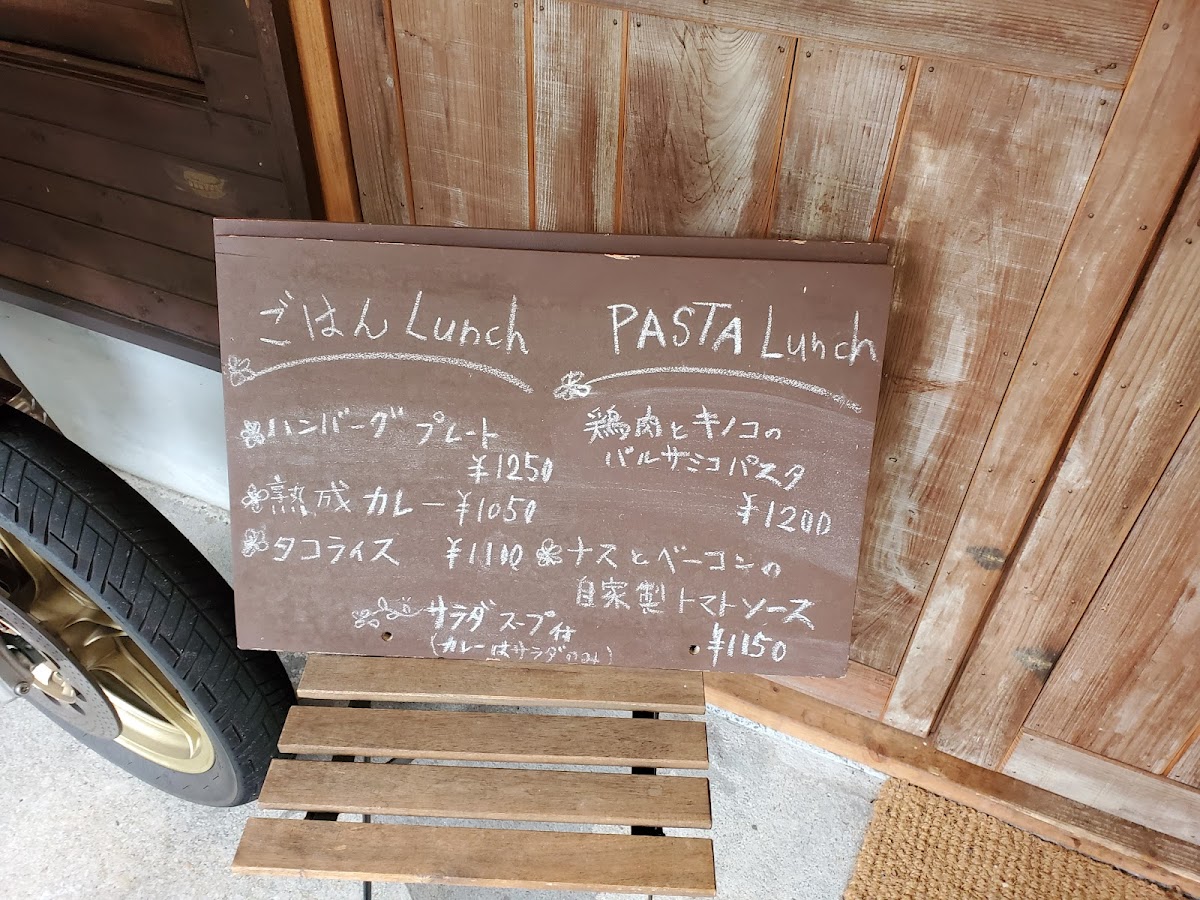 ごはん Lunch
ハンバーグ プレート
¥1250
熟成 カレー ¥1050
タコライス ¥1100
サラダスープ付
(カレーはサラダのみ)
PASTA Lunch
鶏肉とキノコの
バルサミコパスタ
¥1200
ナスとベーコンの
自家製トマトソース
¥1150